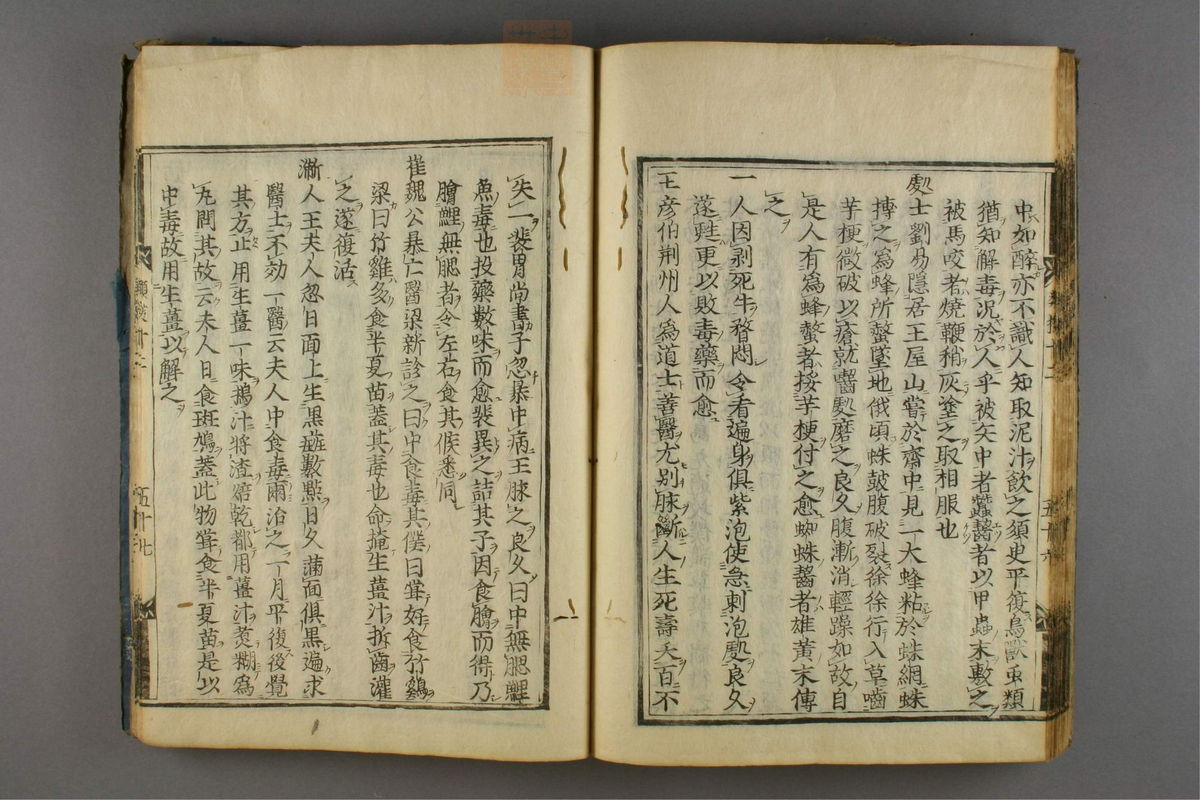 中如醉亦不識人知取泥汁飲之須臾平復鳥獸虫類
猶知解毒况於人乎被矢中者蠶齧者以甲蟲末敷之
被馬咬者燒鞭稍灰塗之取相服也
處士劉易隱居王屋山嘗於齋中見一大蜂粘於蛛網蛛
搏之爲蜂所螫墜地俄頃蛛鼓腹破裂徐徐行入草嚙
芋梗微破以瘡就嚙處磨之良久腹漸消輕躁如故自
是人有爲蜂螫者挼芋梗付之愈蜘蛛齧者雄黃末傅
之
一人因剥死牛瞀悶令看遍身俱紫泡使急刺泡處良久
遂甦更以敗毒藥而愈
王彦伯荆州人爲道士善醫尤別脉斷人生死壽夭百不
失一裴胄尚書子忽暴中病王脉之良久曰中無腮鯉
魚毒也投藥數味而愈裴異之詰其子因食膾而得乃
膾鯉無腮者令左右食其候悉同
崔魏公暴亡醫梁新診之曰中食毒其僕曰常好食竹鷄
梁曰竹雞多食半夏苗蓋其毒也命捩生薑汁折齒灌
之遂復活
浙人王夫人忽日面上生黑斑數點日久滿面俱黑遍求
醫士不効一醫云夫人中食毒爾治之一月平復後覺
其方止用生薑一味搗汁將渣焙乾都用薑汁煑糊爲
丸問其故云夫人日食斑鳩蓋此物常食半夏苗是以
中毒故用生薑以解之
五十七